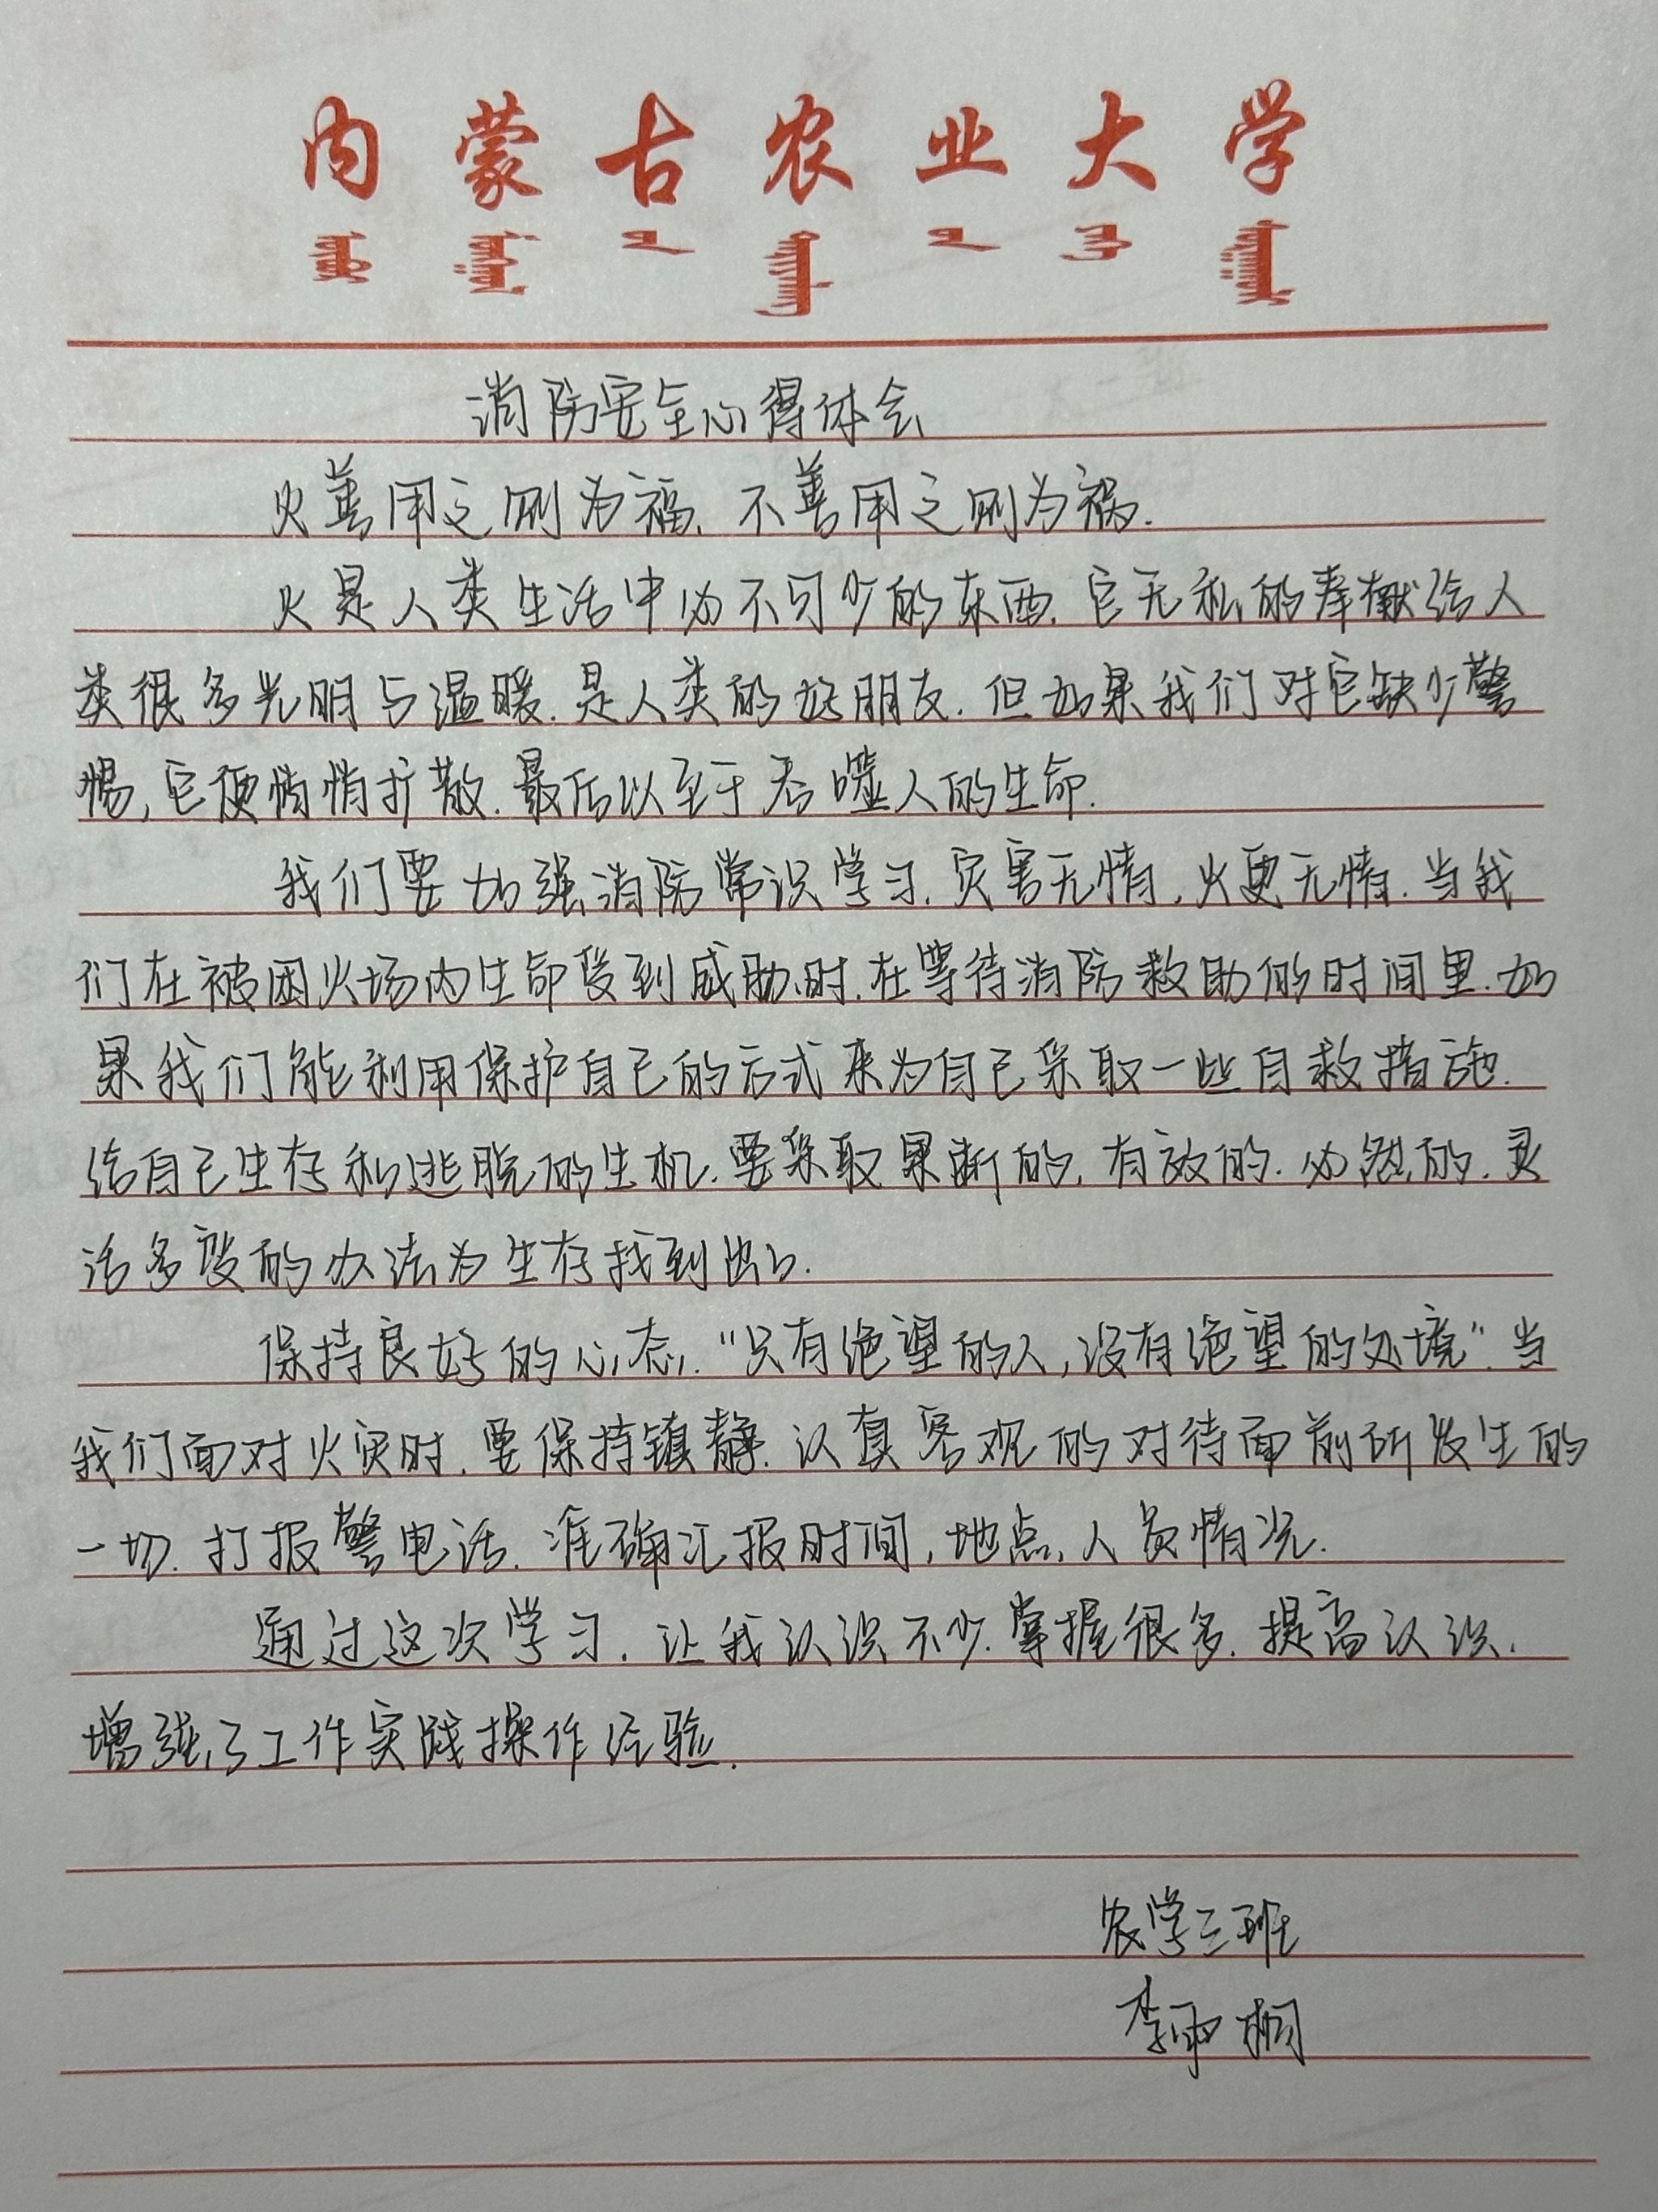 内蒙古农业大学
消防安全心得体会
火善用之则为福、不善用之则为祸.
火是人类生活中必不可少的东西.它无私的奉献给人
类很多光明与温暖.是人类的好朋友.但如果我们对它缺少警
惕,它便悄悄扩散.最后以至于吞噬人的生命.
我们要加强消防常识学习.灾害无情,火更无情.当我
们在被困火场内生命受到威胁时.在等待消防救助的时间里.如
果我们能利用保护自己的方式来为自己采取一些自救措施.
给自己生存和逃脱的生机.要采取果断的,有效的.必然的.灵
活多变的办法为生存找到出口.
保持良好的心态."只有绝望的人,没有绝望的处境".当
我们面对火灾时.要保持镇静.认真客观的对待面前所发生的
一切.打报警电话.准确汇报时间,地点,人员情况.
通过这次学习.让我认识不少.掌握很多.提高认识.
增强了工作实践操作经验.
农学三班
李雨桐